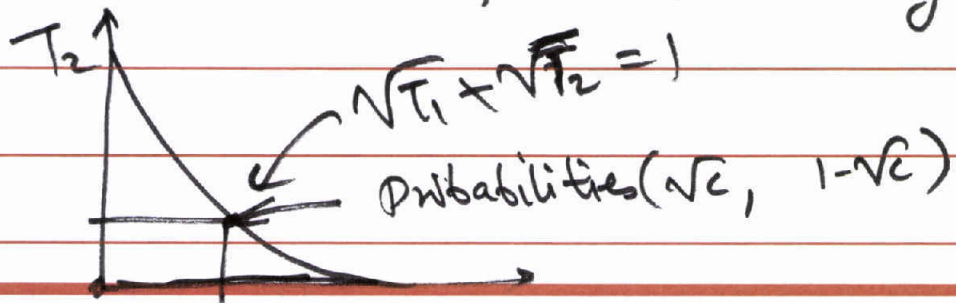 T₂
√T₁ + √T₂ = 1
Probabilities (√c, 1-√c)